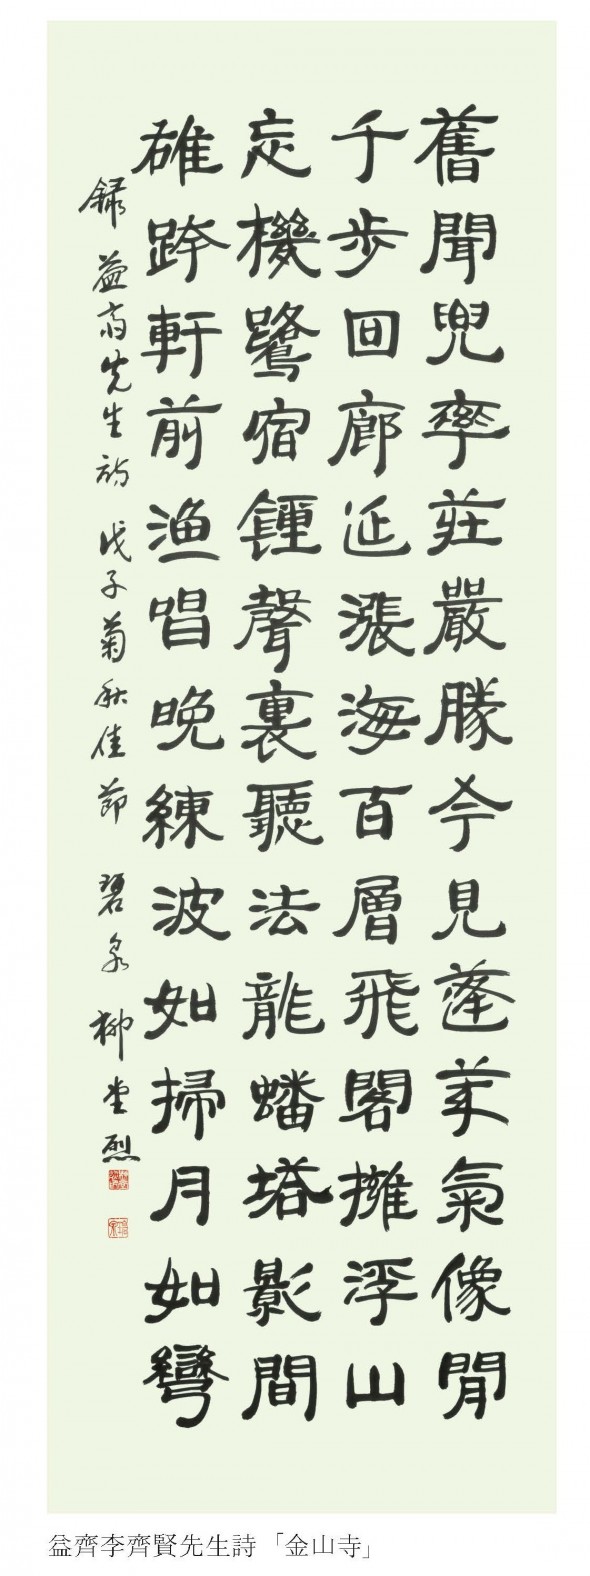 舊聞兜率莊嚴勝今見蓬萊氣像閒
千步回廊延漲海百層飛閣擁浮山
忘機鷺宿鍾聲裏聽法龍蟠塔影間
雄跨軒前漁唱晚練波如掃月如彎
錄益齋先生詩 戊子菊秋佳節 碧泉 柳 烈
益齊李齊賢先生詩「金山寺」